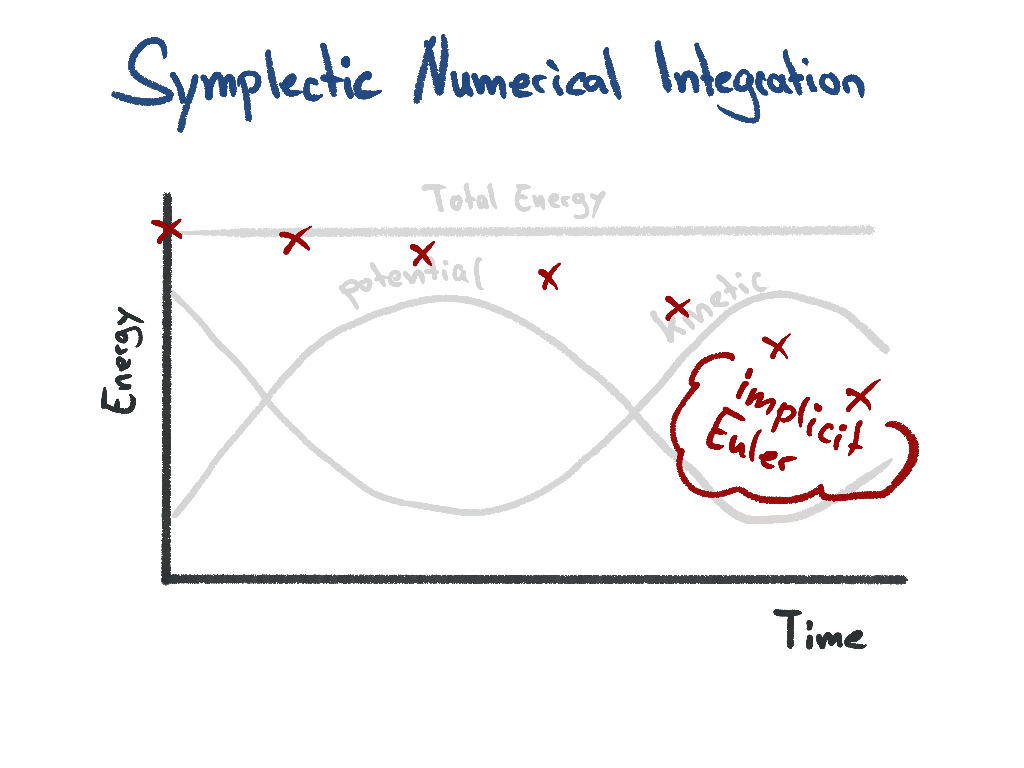 Symplectic Numerical Integration
Total Energy
potential
kinetic
implicit
Euler
Energy
Time